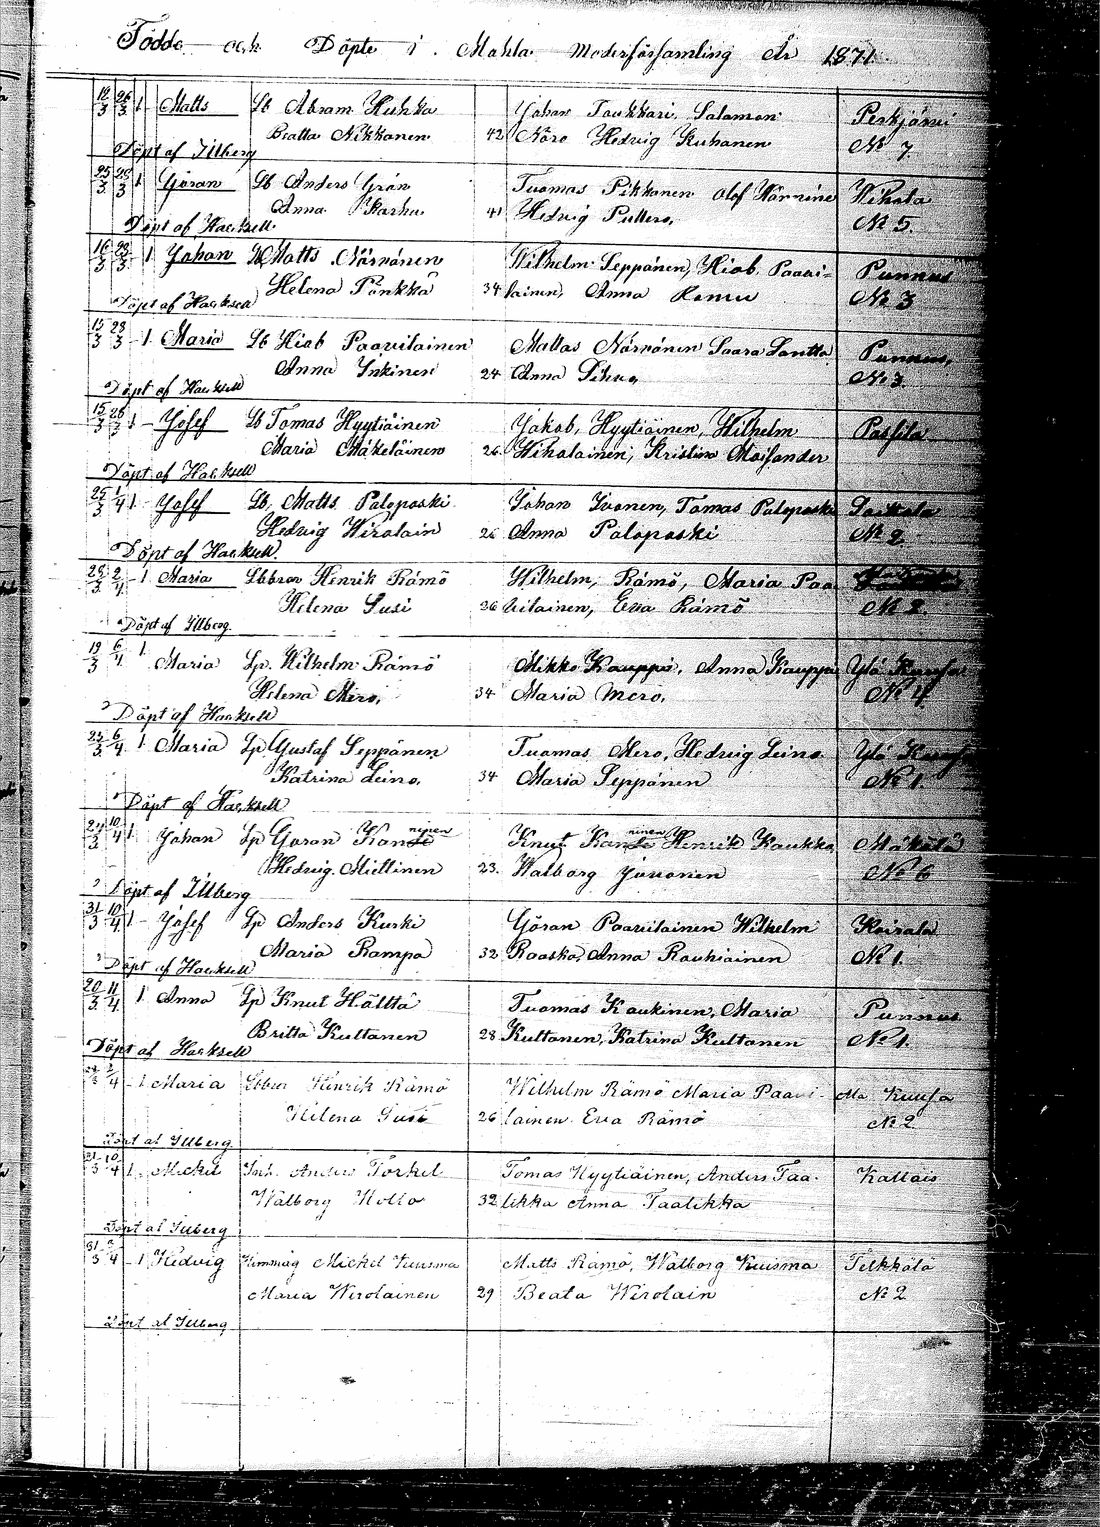 Födde och Döpte i Mohla Moderförsamling År 1871.
18/3 26/3 1 Matts Lb Abram Huhka Johan Tuukkari Salomon Perkjärvi
Beatta Nikkanen 42 Näro Hedvig Kuhanen № 7.
Döpt af Illberg
25/3 28/3 1 Göran Lb Anders Grön Tuomas Pikkanen Olof Hänninen Wihola
Anna Karhu 41 Hedvig Pullero, № 5.
Döpt af Hacksell
16/3 23/3 1 Johan Lb Matts Närvänen Wilhelm Seppänen, Hiob Paavi- Punnus
Helena Pönkkä 34 lainen, Anna Remu № 3
Döpt af Hacksell
15/3 23/3 1 Maria Lb Hiob Paavilainen Mattas Närvänen Saara Santta Punnus,
Anna Inkinen 24 Anna Sihvo, № 3
Döpt af Hacksell
15/3 26/3 1 Josef Lb Tomas Hyytiäinen Jakob, Hyytiäinen, Wilhelm Passila
Maria Mäkeläinen 26 Wikolainen, Kristina Moisander
Döpt af Hacksell
25/3 1/4 1 Josef Lb, Matts Paloposki Johan Ivonen, Tomas Paloposki
Hedvig Wirolain 26 Anna Paloposki № 2
Döpt af Hacksell
28/3 2/4 1 Maria Lbbror Henrik Rämö Wilhelm, Rämö, Maria Paa
Helena Susi 26 vilainen, Eva Rämö № 2
Döpt af Illberg
19/3 6/4 1 Maria Lp. Wilhelm Rämö Mikko Kauppi, Anna Kauppi Ylä Kuusa
Helena Mero, 34 Maria Mero, № 4
Döpt af Hacksell
24/3 6/4 1 Maria Lp Gustaf Seppänen Tuomas Mero, Hedvig Leino Ylä Kuusa
Katrina Leino, 34 Maria Seppänen № 1.
Döpt af Hacksell
24/3 10/4 1 Johan Lp Göran Kanninen Knut Kanninen Henrik Kaukka Mäkälä
Hedvig Miettinen 23. Walborg Jäsvonen № 6
Döpt af Illberg
31/3 10/4 1 Josef Lp Anders Kurki Göran Paavilainen Wilhelm Koirala
Maria Rampa 32 Raaska, Anna Rouhiainen № 1
Döpt af Hacksell
20/3 11/4 1 Anna Lp Knut Hälttä Tuomas Kaukinen, Maria Punnus
Britta Kultanen 28 Kultanen, Katrina Kultanen № 1.
Döpt af Hacksell
28/3 2/4 1 Maria Lbbror Henrik Rämö Wilhelm Rämö Maria Paavi- Ala Kuusa
Helena Susi 26 lainen Eva Rämö № 2
Döpt af Illberg
31/3 10/4 1 Mickel Inh. Anders Torkel Tomas Hyytiäinen, Anders Taa- Kallais
Walborg Hollo 32 likka Anna Taalikka
Döpt af Illberg
31/3 2/4 1 Hedvig Hemmåg Mickel Kuusma Matts Rämö, Walborg Kuisma Telkkälä
Maria Wirolainen 29 Beata Wirolain № 2
Döpt af Illberg